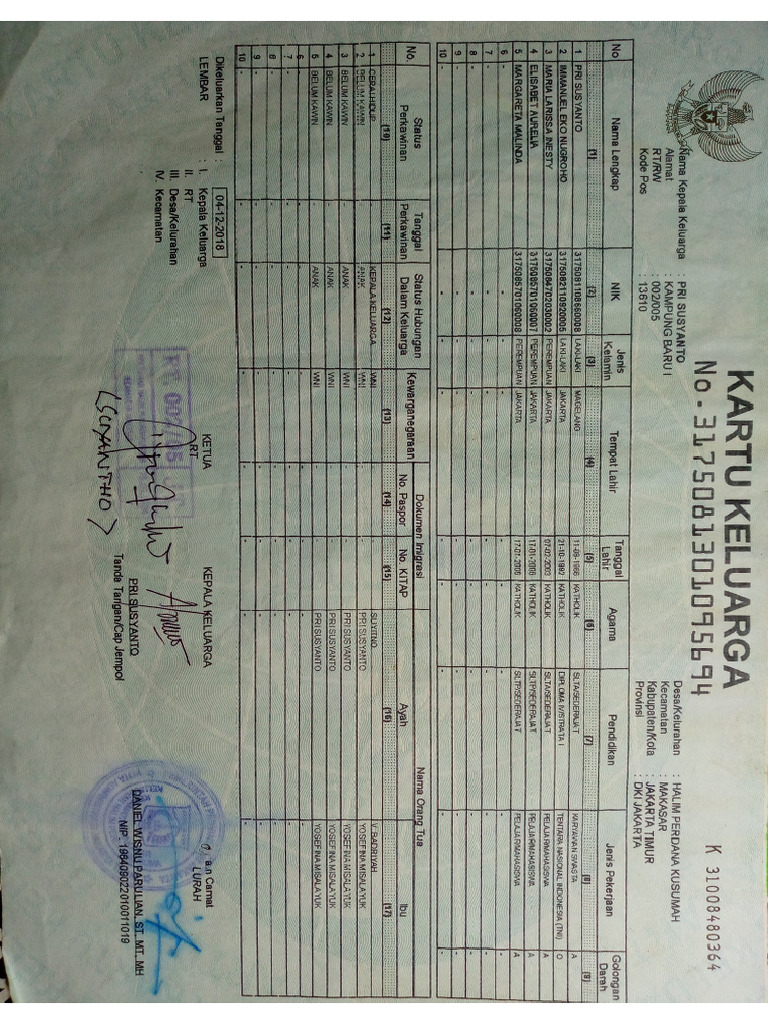 KARTU KELUARGA
No. 3175081301095694
K 31008480364
Nama Kepala Keluarga : PRI SUSYANTO
Alamat : KAMPUNG BARU I
RT/RW : 002/005
Kode Pos : 13610
Desa/Kelurahan : HALIM PERDANA KUSUMAH
Kecamatan : MAKASAR
Kabupaten/Kota : JAKARTA TIMUR
Provinsi : DKI JAKARTA
No Nama Lengkap NIK Jenis Kelamin Tempat Lahir Tanggal Lahir Agama Pendidikan Jenis Pekerjaan Golongan Darah
(1) (2) (3) (4) (5) (6) (7) (8) (9)
1 PRI SUSYANTO 3175081108660008 LAKI-LAKI MAGELANG 11-08-1966 KATHOLIK SLTA/SEDERAJAT KARYAWAN SWASTA A
2 IMMANUEL EKO NUGROHO 3175082110920005 LAKI-LAKI JAKARTA 21-10-1992 KATHOLIK DIPLOMA IV/STRATA I TENTARA NASIONAL INDONESIA (TNI) O
3 MARIA LARISSA INESTY 3175084702030002 PEREMPUAN JAKARTA 07-02-2003 KATHOLIK SLTA/SEDERAJAT PELAJAR/MAHASISWA A
4 ELISABET AURELIA 3175085701060007 PEREMPUAN JAKARTA 17-01-2006 KATHOLIK SLTP/SEDERAJAT PELAJAR/MAHASISWA A
5 MARGARETA MALINDA 3175085701060008 PEREMPUAN JAKARTA 17-01-2006 KATHOLIK SLTP/SEDERAJAT PELAJAR/MAHASISWA A
6 - - - - - - - - -
7 - - - - - - - - -
8 - - - - - - - - -
9 - - - - - - - - -
10 - - - - - - - - -
No. Status Perkawinan Tanggal Perkawinan Status Hubungan Dalam Keluarga Kewarganegaraan Dokumen Imigrasi Nama Orang Tua
No. Paspor No. KITAP Ayah Ibu
(10) (11) (12) (13) (14) (15) (16) (17)
1 CERAI HIDUP - KEPALA KELUARGA WNI - - SUYITNO V. BADRIYAH
2 BELUM KAWIN - ANAK WNI - - PRI SUSYANTO YOSEFINA MISALA YUK
3 BELUM KAWIN - ANAK WNI - - PRI SUSYANTO YOSEFINA MISALA YUK
4 BELUM KAWIN - ANAK WNI - - PRI SUSYANTO YOSEFINA MISALA YUK
5 BELUM KAWIN - ANAK WNI - - PRI SUSYANTO YOSEFINA MISALA YUK
6 - - - - - - - -
7 - - - - - - - -
8 - - - - - - - -
9 - - - - - - - -
10 - - - - - - - -
Dikeluarkan Tanggal : 04-12-2018
LEMBAR : I. Kepala Keluarga
II. RT
III. Desa/Kelurahan
IV. Kecamatan
KETUA
RT
(SUYANTHO)
KEPALA KELUARGA
PRI SUSYANTO
Tanda Tangan/Cap Jempol
a.n Camat
LURAH
DANIEL WISNU PARULIAN, ST. MT. MH
NIP. 196409022010011019